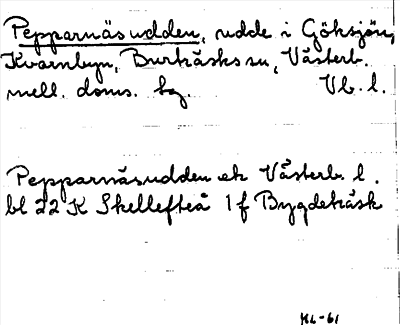 Pepparnäsudden, udde i Göksjön,
Kvarnbyn, Burträsks sn, Västerb.
mell. doms. hg. Vb. l.
Pepparnäsudden ek Västerb. l.
bl 22 K Skellefteå 1 f Bygdeträsk
KL-61